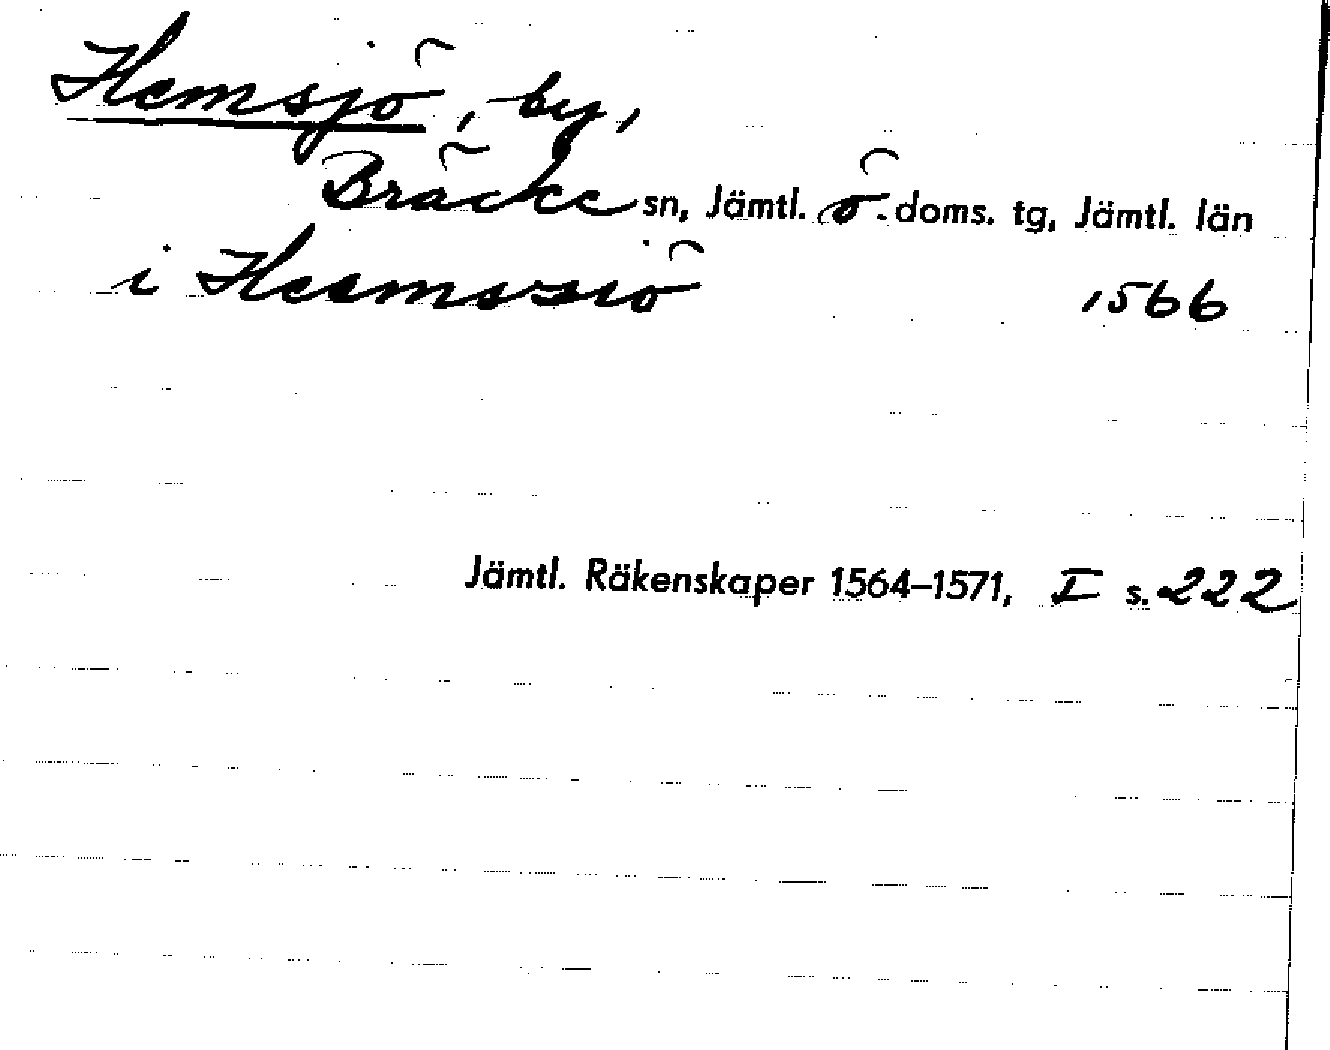 Hemsjö, by,
Bräcke sn, Jämtl. ö. doms. tg, Jämtl. län
i Heemssiö 1566
Jämtl. Räkenskaper 1564–1571, I s. 222